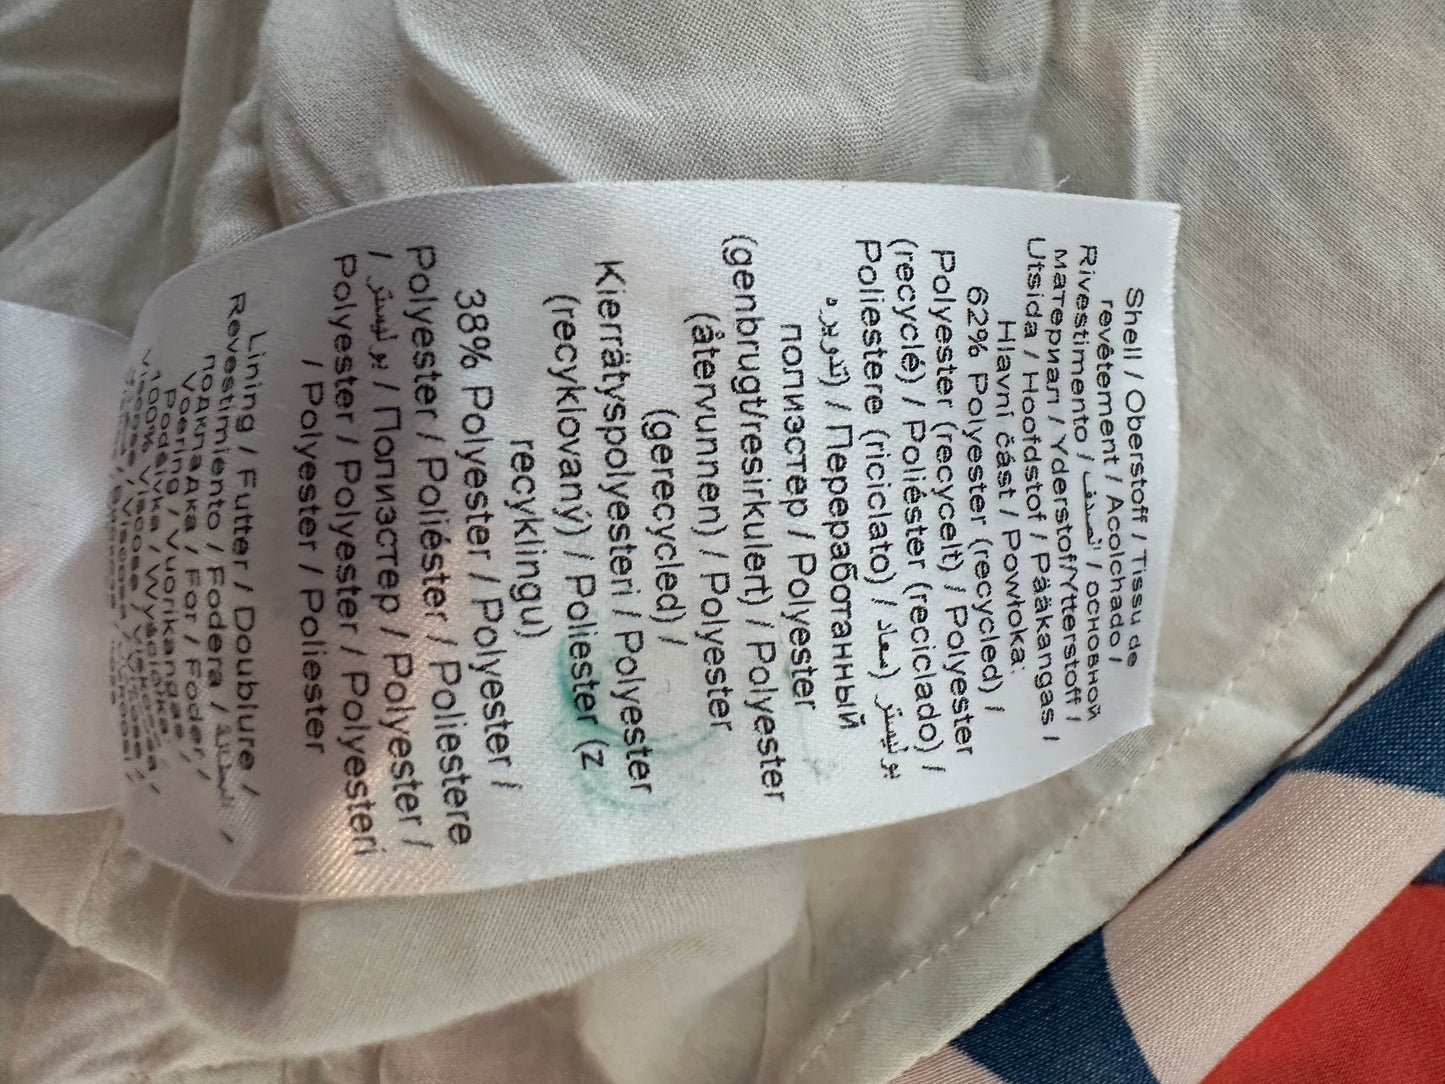 Shell / Oberstoff / Tissu de
revêtement / Acolchado /
Rivestimento / الصدف / основной
материал / Yderstof/Ytterstoff /
Utsida / Hoofdstof / Pääkangas /
Hlavní část / Powłoka:
62% Polyester (recycled) /
Polyester (recycelt) / Polyester
(recyclé) / Poliéster (reciclado) /
Poliestere (riciclato) / بوليستر (معاد
تدويره) / Переработанный
полиэстер / Polyester
(genbrugt/resirkulert) / Polyester
(återvunnen) / Polyester
(gerecycled) /
Kierrätyspolyesteri / Polyester
(recyklovaný) / Poliester (z
recyklingu)
38% Polyester / Polyester /
Polyester / Poliéster / Poliestere
/ بوليستر / Полиэстер / Polyester /
Polyester / Polyester / Polyesteri
/ Polyester / Poliester
Lining / Futter / Doublure /
Revestimiento / Fodera / البطانة /
подкладка / For / Foder /
Voering / Vuorikangas
Podšívka / Wyściółka:
100% Viscose / Viskose /
Viscose / Viscosa / Viscosa /
/ Вискоза /